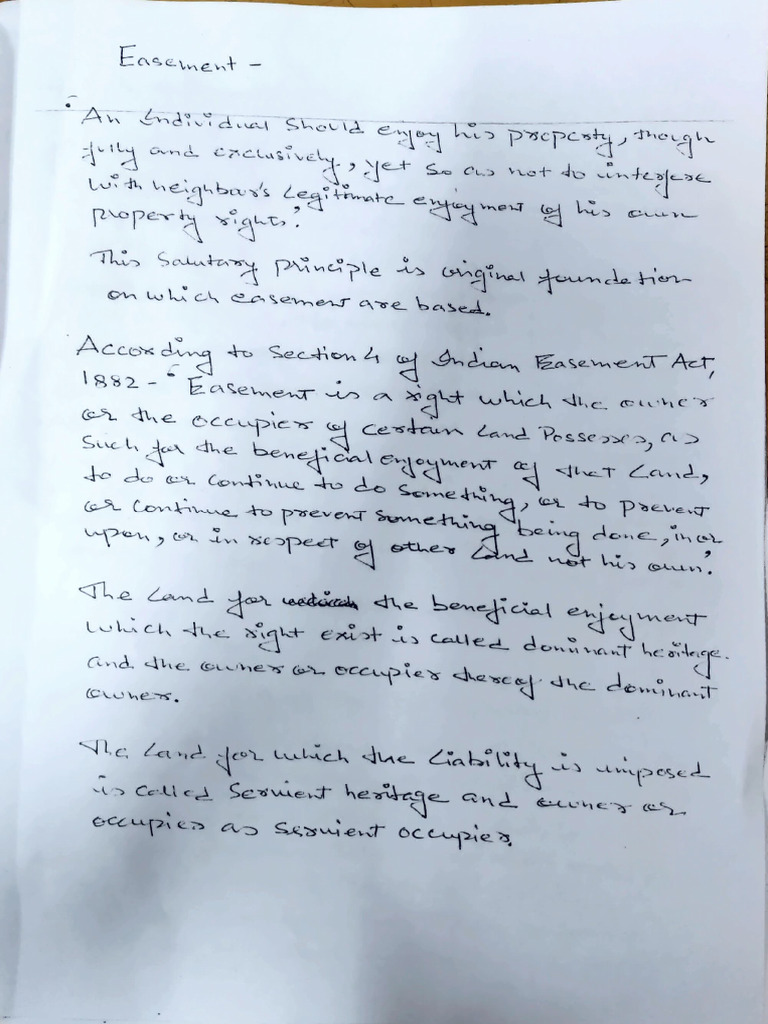 Easement -
'An Individual should enjoy his property, though
fully and exclusively, yet so as not to interfere
with neighbour's Legitimate enjoyment of his own
property rights.'
This Salutary principle is original foundation
on which easement are based.
According to Section 4 of Indian Easement Act,
1882 - "Easement is a right which the owner
or the occupier of certain Land Possesses, as
Such for the beneficial enjoyment of that Land,
to do or continue to do something, or to prevent
or continue to prevent something being done, in or
upon, or in respect of other Land not his own.'
The Land for the beneficial enjoyment
which the right exist is called dominant heritage.
and the owner or occupier thereof the dominant
owner.
The Land for which the Liability is imposed
is called Servient heritage and owner or
occupier as servient occupier.